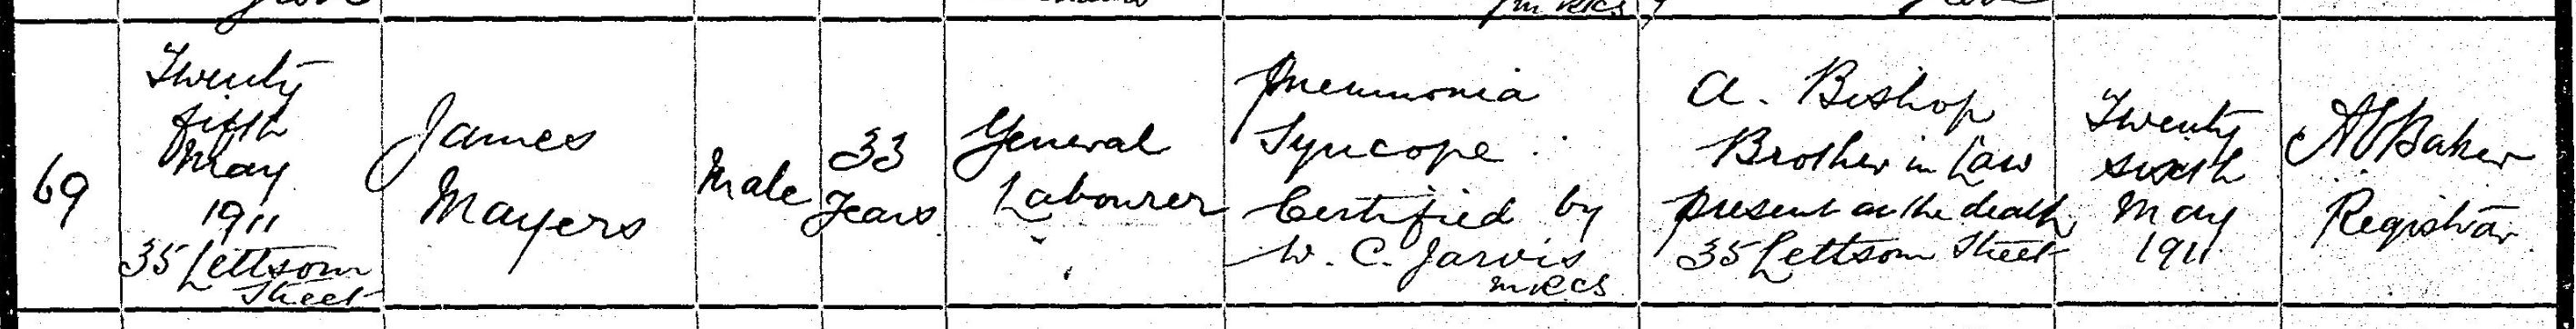 69
Twenty
fifth
May
1911
35 Lettsom
Street
James
Mayers
Male
33
Years
General
Labourer
Pneumonia
Syncope
Certified by
W. C. Jarvis
MRCS
A. Bishop
Brother in Law
Present at the death
35 Lettsom Street
Twenty
sixth
May
1911
Baker
Registrar